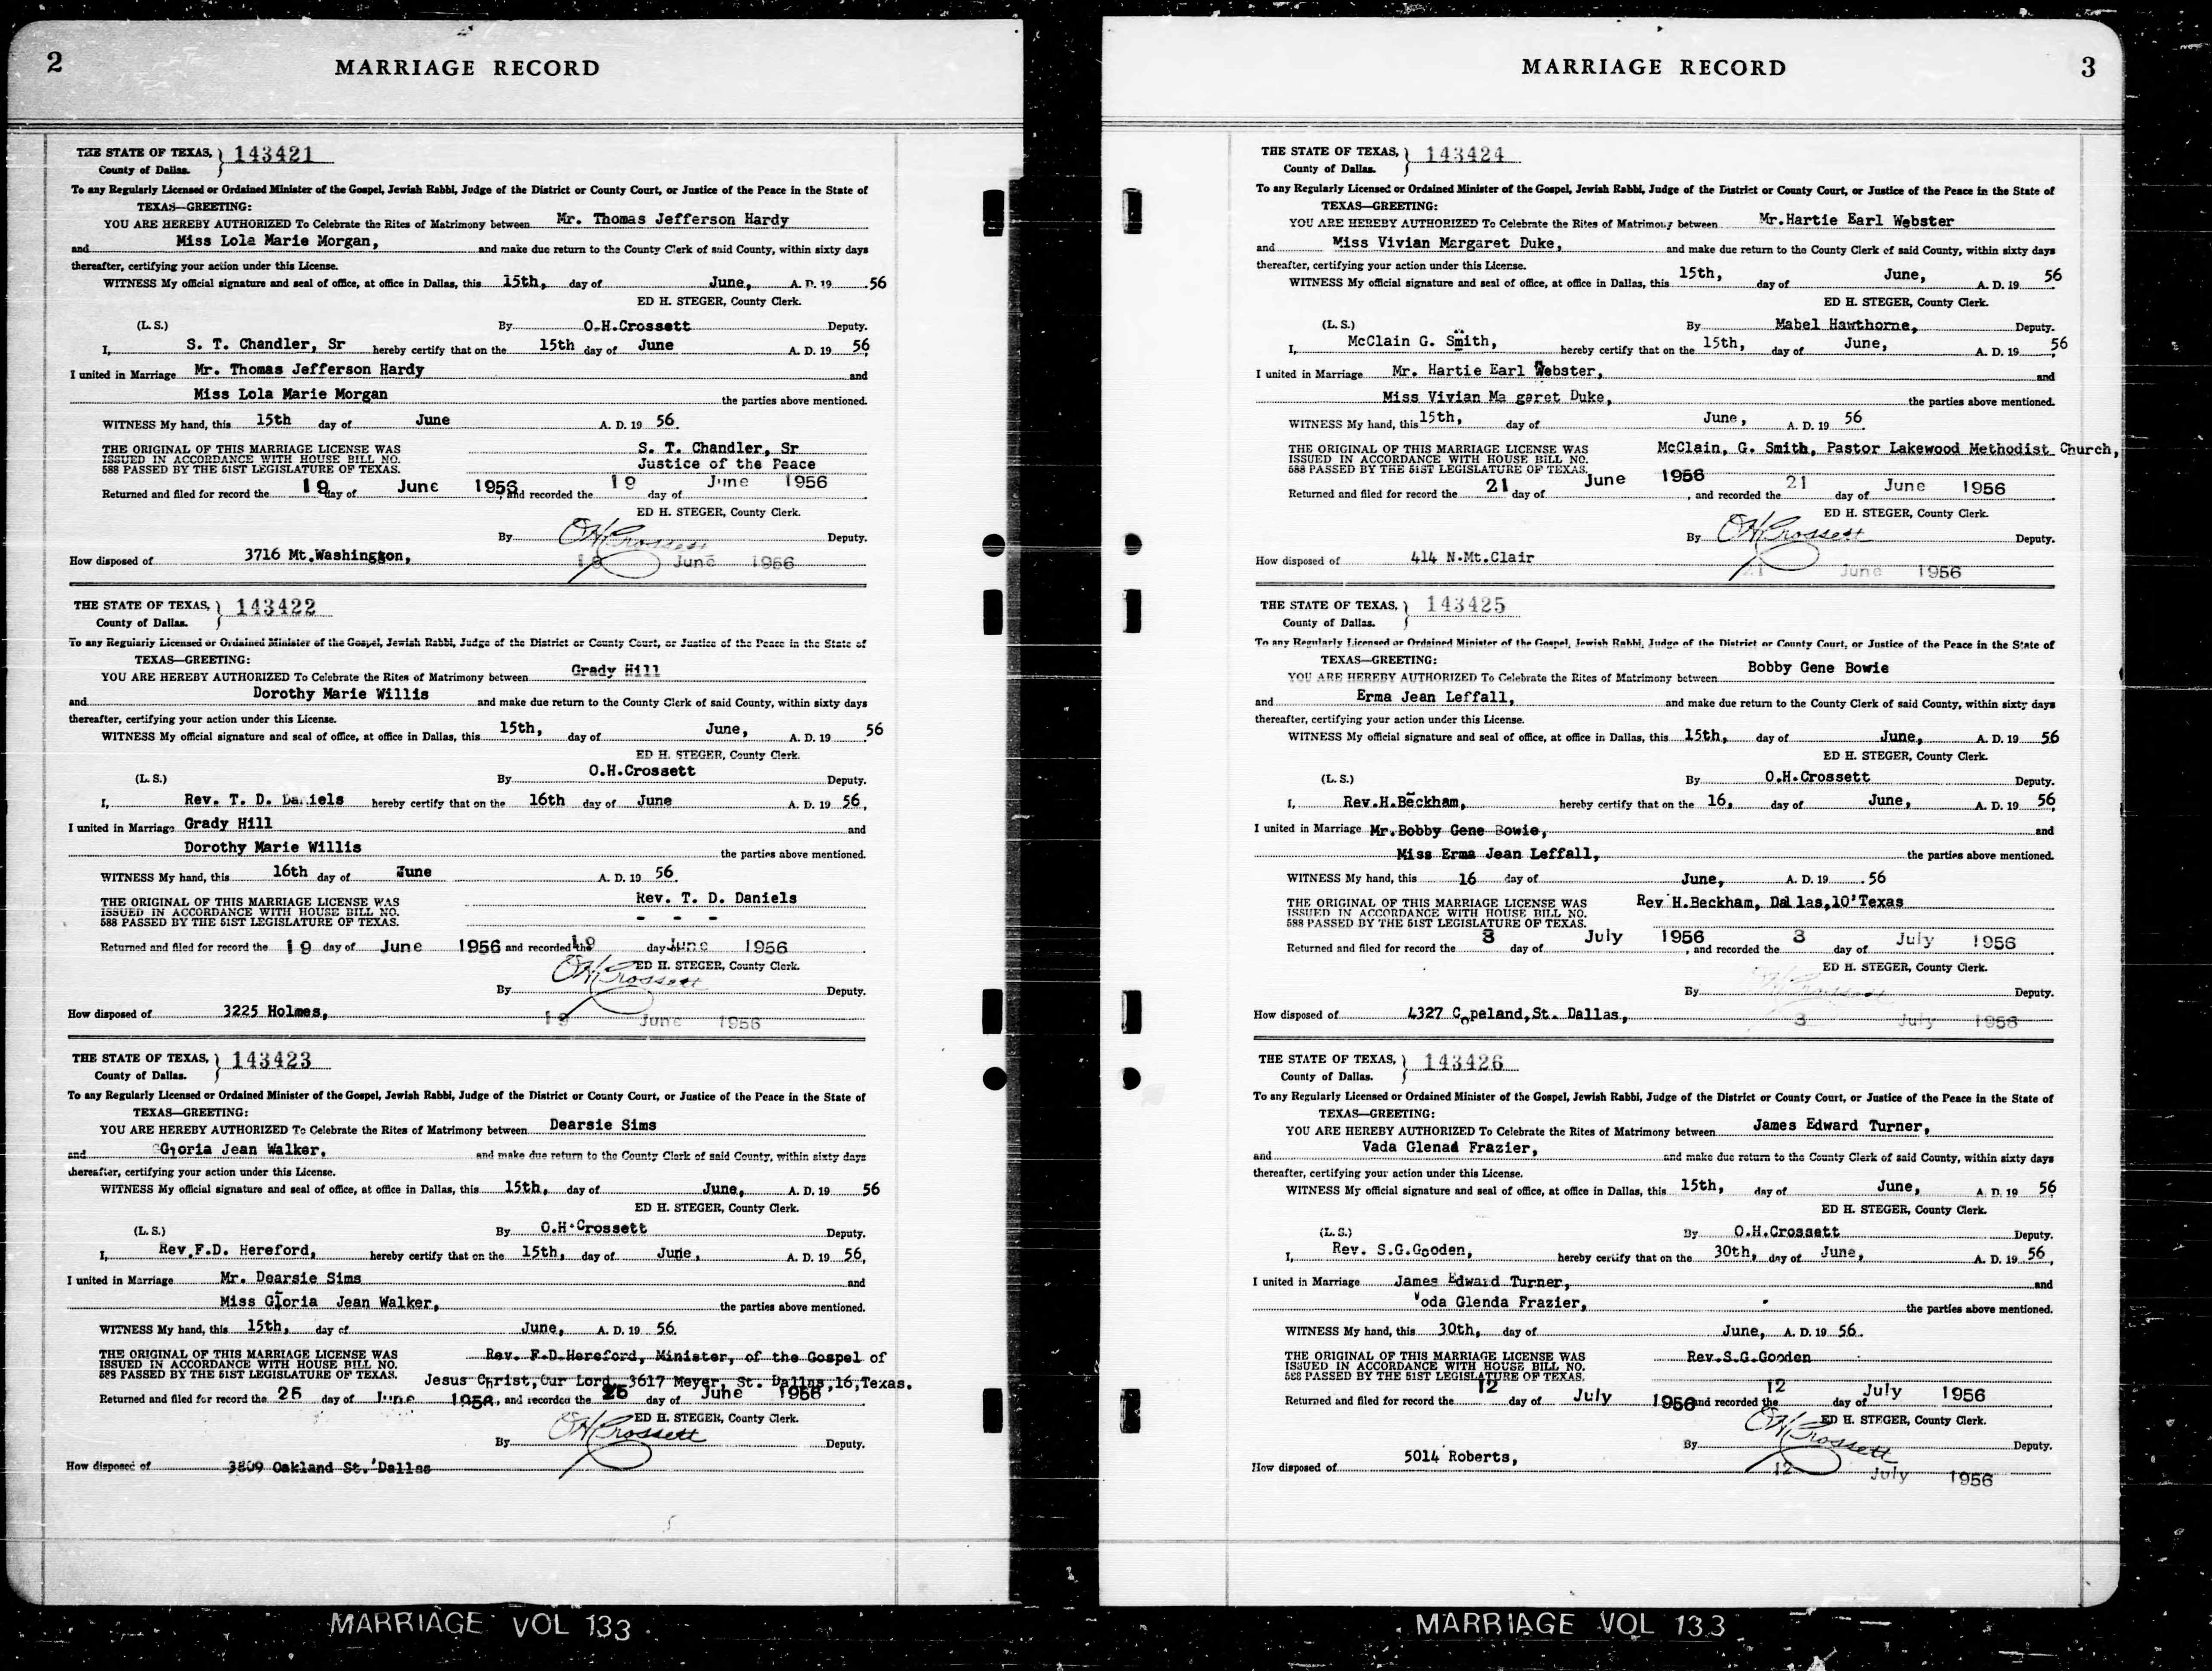 2
MARRIAGE RECORD
THE STATE OF TEXAS, } 143421
County of Dallas.
To any Regularly Licensed or Ordained Minister of the Gospel, Jewish Rabbi, Judge of the District or County Court, or Justice of the Peace in the State of
TEXAS—GREETING:
YOU ARE HEREBY AUTHORIZED To Celebrate the Rites of Matrimony between Mr. Thomas Jefferson Hardy
and Miss Lola Marie Morgan, and make due return to the County Clerk of said County, within sixty days
thereafter, certifying your action under this License.
WITNESS My official signature and seal of office, at office in Dallas, this 15th, day of June, A. D. 19 56
ED H. STEGER, County Clerk.
(L. S.) By O.H.Crossett Deputy.
I, S. T. Chandler, Sr hereby certify that on the 15th day of June A. D. 19 56,
I united in Marriage Mr. Thomas Jefferson Hardy and
Miss Lola Marie Morgan the parties above mentioned.
WITNESS My hand, this 15th day of June A. D. 19 56.
THE ORIGINAL OF THIS MARRIAGE LICENSE WAS S. T. Chandler, Sr
ISSUED IN ACCORDANCE WITH HOUSE BILL NO.
588 PASSED BY THE 51ST LEGISLATURE OF TEXAS. Justice of the Peace
Returned and filed for record the 19 day of June 1956, and recorded the 19 day of June 1956
ED H. STEGER, County Clerk.
By OH Crossett Deputy.
How disposed of 3716 Mt.Washington, 19 June 1956
THE STATE OF TEXAS, } 143422
County of Dallas.
To any Regularly Licensed or Ordained Minister of the Gospel, Jewish Rabbi, Judge of the District or County Court, or Justice of the Peace in the State of
TEXAS—GREETING:
YOU ARE HEREBY AUTHORIZED To Celebrate the Rites of Matrimony between Grady Hill
and Dorothy Marie Willis and make due return to the County Clerk of said County, within sixty days
thereafter, certifying your action under this License.
WITNESS My official signature and seal of office, at office in Dallas, this 15th, day of June, A. D. 19 56
ED H. STEGER, County Clerk.
(L. S.) By O.H.Crossett Deputy.
I, Rev. T. D. Daniels hereby certify that on the 16th day of June A. D. 19 56,
I united in Marriage Grady Hill and
Dorothy Marie Willis the parties above mentioned.
WITNESS My hand, this 16th day of June A. D. 19 56.
THE ORIGINAL OF THIS MARRIAGE LICENSE WAS Rev. T. D. Daniels
ISSUED IN ACCORDANCE WITH HOUSE BILL NO.
588 PASSED BY THE 51ST LEGISLATURE OF TEXAS. - - -
Returned and filed for record the 19 day of June 1956 and recorded the 19 day of June 1956
ED H. STEGER, County Clerk.
By OH Crossett Deputy.
How disposed of 3225 Holmes, 19 June 1956
THE STATE OF TEXAS, } 143423
County of Dallas.
To any Regularly Licensed or Ordained Minister of the Gospel, Jewish Rabbi, Judge of the District or County Court, or Justice of the Peace in the State of
TEXAS—GREETING:
YOU ARE HEREBY AUTHORIZED To Celebrate the Rites of Matrimony between Dearsie Sims
and Gloria Jean Walker, and make due return to the County Clerk of said County, within sixty days
thereafter, certifying your action under this License.
WITNESS My official signature and seal of office, at office in Dallas, this 15th, day of June, A. D. 19 56
ED H. STEGER, County Clerk.
(L. S.) By O.H.Crossett Deputy.
I, Rev.F.D. Hereford, hereby certify that on the 15th, day of June, A. D. 19 56,
I united in Marriage Mr. Dearsie Sims and
Miss Gloria Jean Walker, the parties above mentioned.
WITNESS My hand, this 15th, day of June, A. D. 19 56.
THE ORIGINAL OF THIS MARRIAGE LICENSE WAS Rev. F.D.Hereford, Minister, of the Gospel of
ISSUED IN ACCORDANCE WITH HOUSE BILL NO.
588 PASSED BY THE 51ST LEGISLATURE OF TEXAS. Jesus Christ,Our Lord, 3617 Meyer, St. Dallas,16,Texas.
Returned and filed for record the 25 day of June 1956, and recorded the 25 day of June 1956
ED H. STEGER, County Clerk.
By OH Crossett Deputy.
How disposed of 3809 Oakland St.'Dallas
MARRIAGE VOL 133
3
MARRIAGE RECORD
THE STATE OF TEXAS, } 143424
County of Dallas.
To any Regularly Licensed or Ordained Minister of the Gospel, Jewish Rabbi, Judge of the District or County Court, or Justice of the Peace in the State of
TEXAS—GREETING:
YOU ARE HEREBY AUTHORIZED To Celebrate the Rites of Matrimony between Mr.Hartie Earl Webster
and Miss Vivian Margaret Duke, and make due return to the County Clerk of said County, within sixty days
thereafter, certifying your action under this License.
WITNESS My official signature and seal of office, at office in Dallas, this 15th, day of June, A. D. 19 56
ED H. STEGER, County Clerk.
(L. S.) By Mabel Hawthorne, Deputy.
I, McClain G. Smith, hereby certify that on the 15th, day of June, A. D. 19 56,
I united in Marriage Mr. Hartie Earl Webster, and
Miss Vivian Ma garet Duke, the parties above mentioned.
WITNESS My hand, this 15th, day of June, A. D. 19 56.
THE ORIGINAL OF THIS MARRIAGE LICENSE WAS McClain, G. Smith, Pastor Lakewood Methodist Church,
ISSUED IN ACCORDANCE WITH HOUSE BILL NO.
588 PASSED BY THE 51ST LEGISLATURE OF TEXAS.
Returned and filed for record the 21 day of June 1956, and recorded the 21 day of June 1956
ED H. STEGER, County Clerk.
By OH Crossett Deputy.
How disposed of 414 N.Mt.Clair 21 June 1956
THE STATE OF TEXAS, } 143425
County of Dallas.
To any Regularly Licensed or Ordained Minister of the Gospel, Jewish Rabbi, Judge of the District or County Court, or Justice of the Peace in the State of
TEXAS—GREETING:
YOU ARE HEREBY AUTHORIZED To Celebrate the Rites of Matrimony between Bobby Gene Bowie
and Erma Jean Leffall, and make due return to the County Clerk of said County, within sixty days
thereafter, certifying your action under this License.
WITNESS My official signature and seal of office, at office in Dallas, this 15th, day of June, A. D. 19 56
ED H. STEGER, County Clerk.
(L. S.) By O.H.Crossett Deputy.
I, Rev.H.Beckham, hereby certify that on the 16, day of June, A. D. 19 56,
I united in Marriage Mr.Bobby Gene Bowie, and
Miss Erma Jean Leffall, the parties above mentioned.
WITNESS My hand, this 16 day of June, A. D. 19 56
THE ORIGINAL OF THIS MARRIAGE LICENSE WAS Rev H.Beckham, Dallas,10'Texas
ISSUED IN ACCORDANCE WITH HOUSE BILL NO.
588 PASSED BY THE 51ST LEGISLATURE OF TEXAS.
Returned and filed for record the 3 day of July 1956, and recorded the 3 day of July 1956
ED H. STEGER, County Clerk.
By OH Crossett Deputy.
How disposed of 4327 Copeland,St. Dallas, 3 July 1956
THE STATE OF TEXAS, } 143426
County of Dallas.
To any Regularly Licensed or Ordained Minister of the Gospel, Jewish Rabbi, Judge of the District or County Court, or Justice of the Peace in the State of
TEXAS—GREETING:
YOU ARE HEREBY AUTHORIZED To Celebrate the Rites of Matrimony between James Edward Turner,
and Vada Glenad Frazier, and make due return to the County Clerk of said County, within sixty days
thereafter, certifying your action under this License.
WITNESS My official signature and seal of office, at office in Dallas, this 15th, day of June, A. D. 19 56
ED H. STEGER, County Clerk.
(L. S.) By O.H.Crossett Deputy.
I, Rev. S.G.Gooden, hereby certify that on the 30th, day of June, A. D. 19 56,
I united in Marriage James Edward Turner, and
Voda Glenda Frazier, the parties above mentioned.
WITNESS My hand, this 30th, day of June, A. D. 19 56.
THE ORIGINAL OF THIS MARRIAGE LICENSE WAS Rev.S.G.Gooden
ISSUED IN ACCORDANCE WITH HOUSE BILL NO.
588 PASSED BY THE 51ST LEGISLATURE OF TEXAS.
Returned and filed for record the 12 day of July 1956 and recorded the 12 day of July 1956
ED H. STEGER, County Clerk.
By OH Crossett Deputy.
How disposed of 5014 Roberts, 12 July 1956
MARRIAGE VOL 133